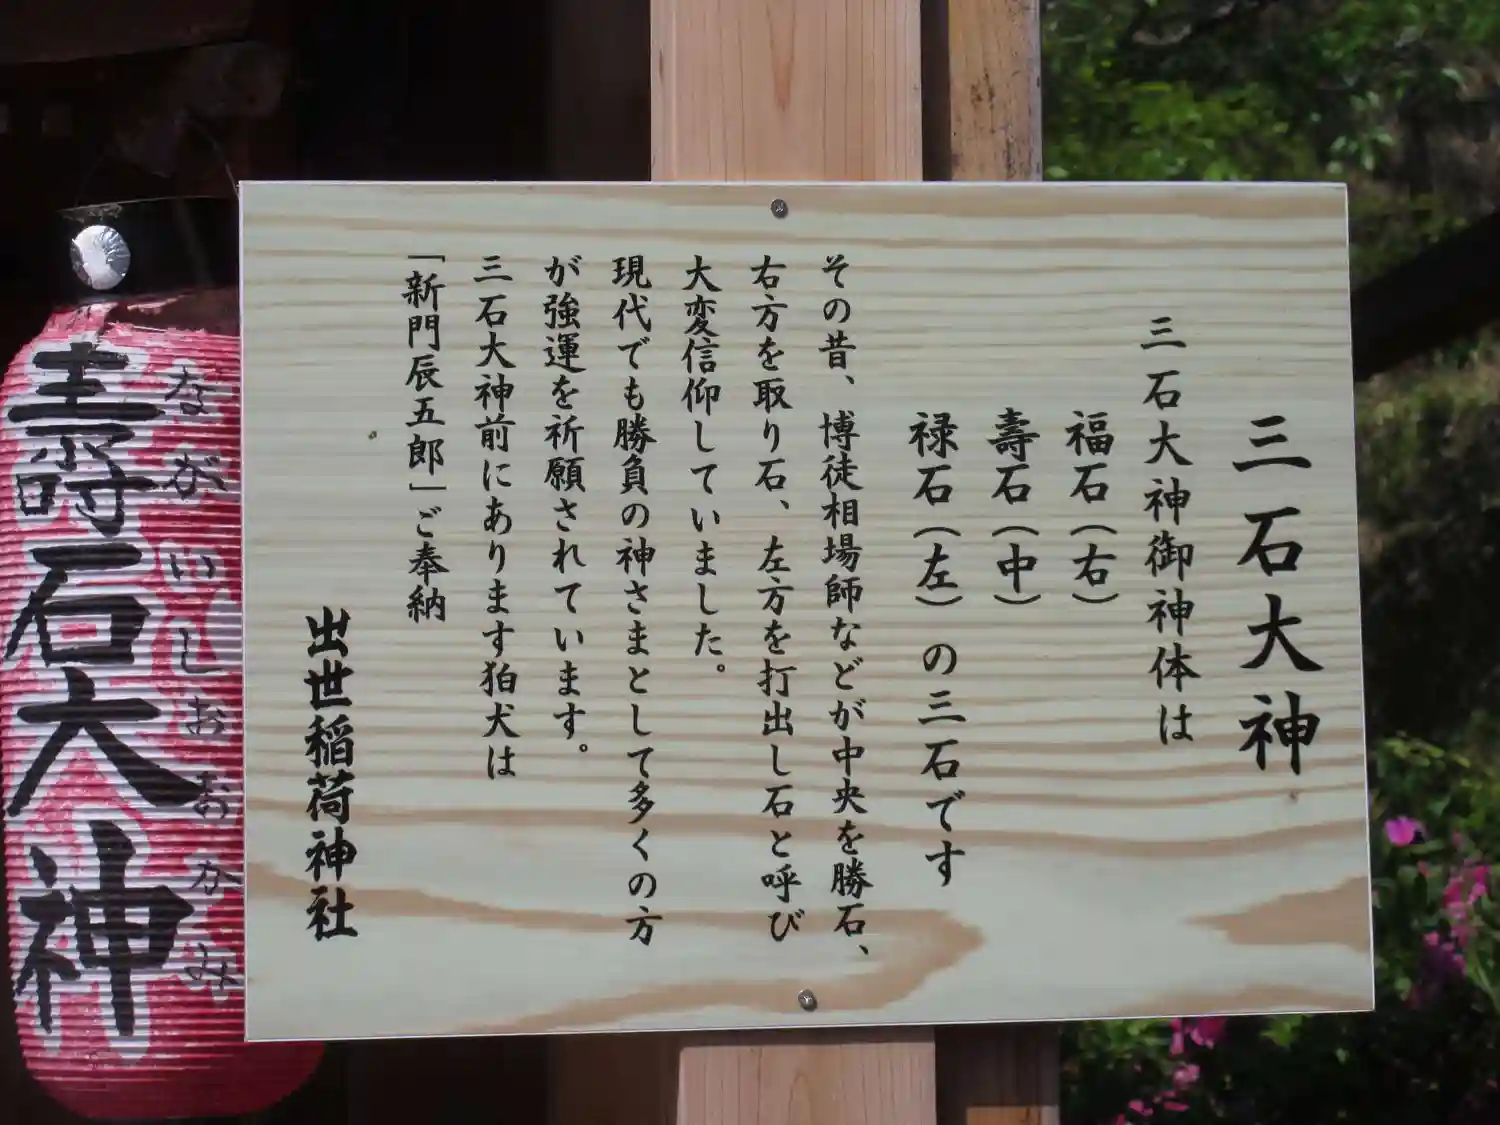 三石大神
三石大神御神体は
福石（右）
壽石（中）
禄石（左）の三石です
その昔、博徒相場師などが中央を勝石、
右方を取り石、左方を打出し石と呼び
大変信仰していました。
現代でも勝負の神さまとして多くの方
が強運を祈願されています。
三石大神前にあります狛犬は
「新門辰五郎」ご奉納
出世稲荷神社
ながいしおおかみ
壽石大神